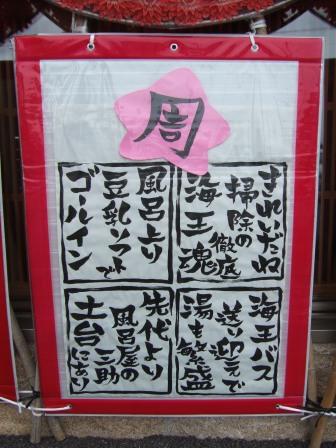 周
きれいだね
掃除の徹底
海王魂
風呂上り
豆乳ソフトで
ゴールイン
海王バス
送り迎えで
湯も繁盛
先代より
風呂屋の三助
土台にあり